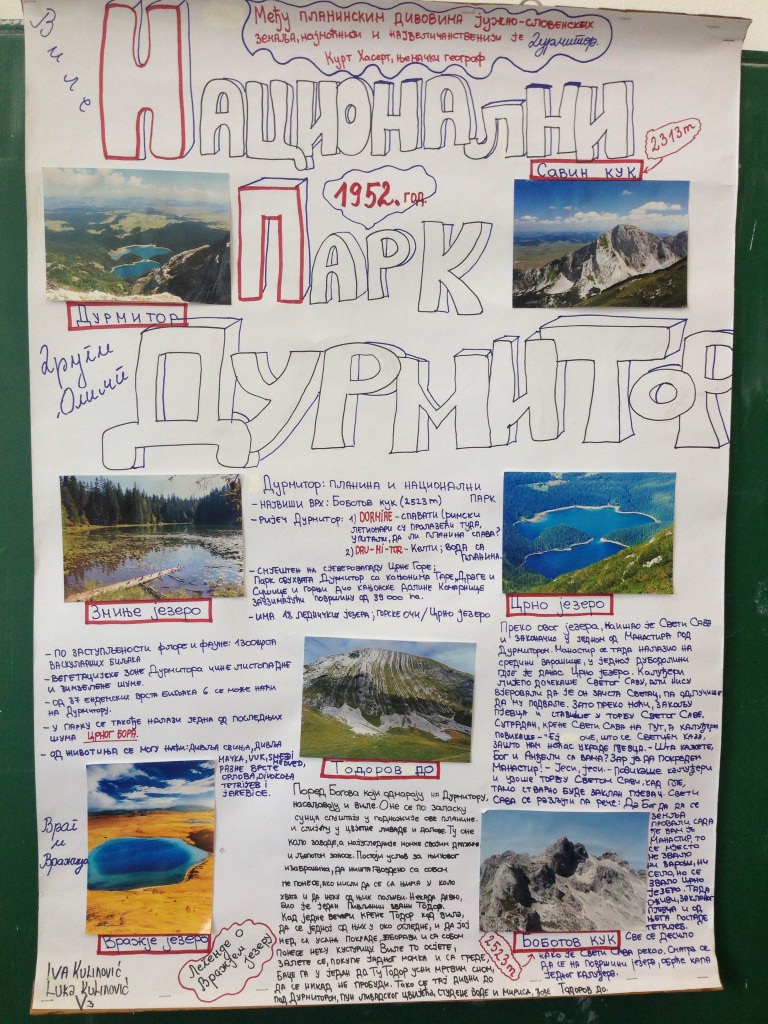 Виле
Међу планинским дивовима јужно-словенских
земаља, најмоћнији и највеличанственији је Дурмитор.
Курт Хасерт, њемачки географ
Национални
2313m
Савин кук
1952. год.
Парк
Дурмитор
Други
Олимп
Дурмитор
Дурмитор: планина и национални
парк
- највиши врх: Боботов кук (2523 m)
- ријеч Дурмитор: 1) DORMIRE - спавати (римски
легионари су пролазећи туда,
упитали, да ли планина спава?
2) DRU-MI-TOR - Келти; вода са
планина.
- смјештен на сјеверозападу Црне Горе;
Парк обухвата Дурмитор са кањонима Таре, Драге и
Сушице и горњи дио кањонске долине Комарнице
заузимајући површину од 39 000 ha.
- има 18 ледничких језера; горске очи / Црно језеро
Змиње језеро
Црно језеро
- по заступљености флоре и фауне: 1300 врста
васкуларних биљака
- вегетацијске зоне Дурмитора чине листопадне
и зимзелене шуме.
- од 37 ендемских врста биљака 6 се може наћи
на Дурмитору.
- у парку се такође налази једна од последњих
шума црног бора.
- од животиња се могу наћи: дивља свиња, дивља
мачка, вук, смеђи медвјед,
разне врсте
орлова, дивокоза
тетријеб и
јаребице.
Тодоров до
Преко овог језера, наишао је Свети Сава
и законачио у једном од манастира под
Дурмитором. Манастир је тада налазио на
средини варошице, у једној дубодолини
гдје је данас Црно језеро. Калуђери
лијепо дочекаше Светог Саву, али нису
вјеровали да је он заиста светац, па одлучише
да му подвале. Зато преко ноћи, закољу
пјевца и ставише у торбу Светог Саве.
Сутрадан, крене Свети Сава на пут, а калуђери
повикаше - Еј оче, што се светцем каза,
зашто нам ноћас украде пјевца. - Шта кажете,
Бог и анђели са вама? Зар ја да покрадем
манастир! - Јеси, јеси. - повикаше калуђери
и узоше торбу Светом Сави, кад гле,
тамо стварно буде заклан пјевац. Свети
Сава се разљути па рече: Да Бог да да се
земља
провали сада
ђе вам је
манастир, то
се мјесто
не звало
ни варош, ни
село, но се
звало Црно
језеро. Тада
оживи, заклани
пјевца и од
њега постаде
тетријеб.
Све се десило
како је Свети Сава рекао. Сматра се
да се на површини језера, обрће капа
једног калуђера.
Поред Богова који одмарају на Дурмитору,
насељавају и виле. Оне се по заласку
сунца спуштају у подножије ове планине
и слијећу у цвјетне ливаде и долове. Ту оне
коло заводе, а најугледније момке својим дражима
и љепотом заносе. Постоји услов за њиховог
изабраника, да ништа гвоздено са собом
не понесе, ако мисли да се са њима у коло
хвата и да неку од њих пољуби. Некада давно,
био је један пивљанин звани Тодор.
Кад једне вечери крене Тодор код вила,
да се једној од њих у око огледне, и да јој
мед са усана покраде, заборави и са собом
понесе неку кустурицу. Виле то осјете,
залете се, покупе јадног момка и са греда,
баце га у један до. Ту Тодор усни мртвим сном,
да се никад не пробуди. Тако се тај дивни до
под Дурмитором, пун ливадског цвијећа, студене воде и мириса, зове Тодоров до.
Враг
и
Вражица
Вражје језеро
Легенде о
Вражјем
језеру
2523m
Боботов кук
IVA KULINOVIĆ
LUKA KULINOVIĆ
V3